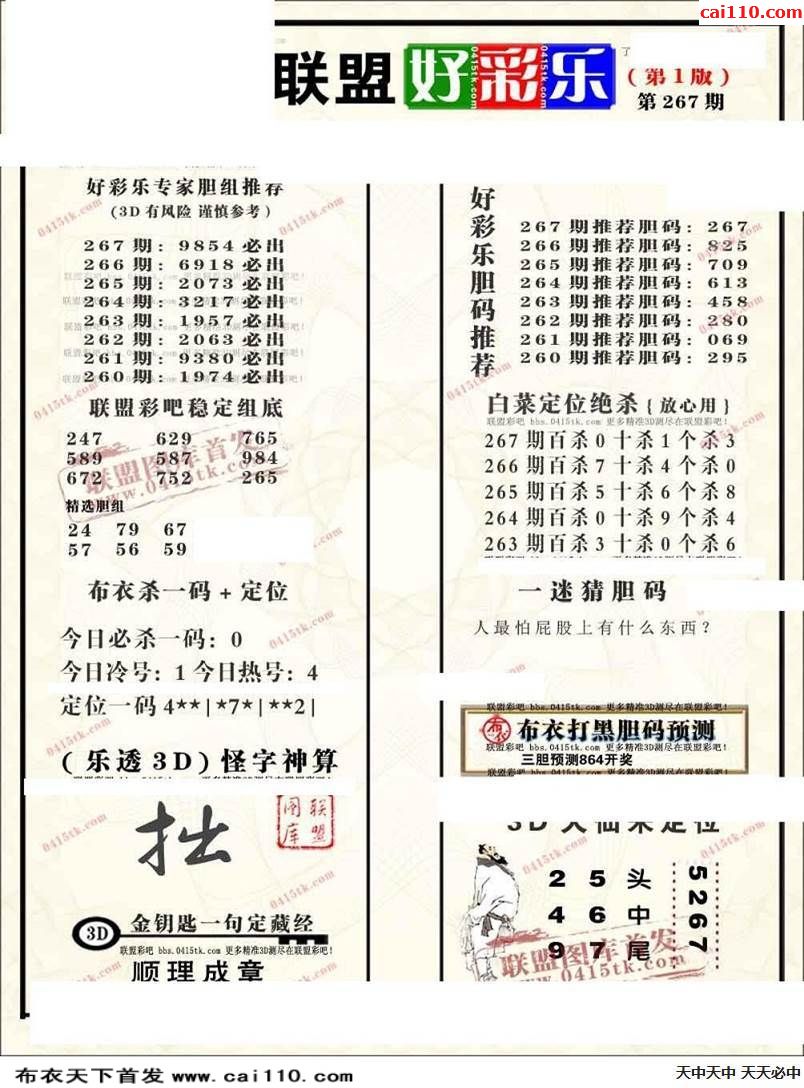 cai110.com
联盟 好彩乐
(第1版)
第267期
好彩乐专家胆组推荐
(3D有风险 谨慎参考)
267期：9854必出
266期：6918必出
265期：2073必出
264期：3217必出
263期：1957必出
262期：2063必出
261期：9380必出
260期：1974必出
联盟彩吧稳定组底
247 629 765
589 587 984
672 752 265
联盟图库首发
www.0415tk.com
精选胆组
24 79 67
57 56 59
布衣杀一码+定位
今日必杀一码：0
今日冷号：1 今日热号：4
定位一码 4**|*7*|**2|
(乐透3D)怪字神算
拙
联盟图库
3D 金钥匙一句定藏经
联盟彩吧 bbs.0415tk.com 更多精准3D测尽在联盟彩吧!
顺理成章
好彩乐胆码推荐
267期推荐胆码：267
266期推荐胆码：825
265期推荐胆码：709
264期推荐胆码：613
263期推荐胆码：458
262期推荐胆码：280
261期推荐胆码：069
260期推荐胆码：295
白菜定位绝杀{放心用}
联盟彩吧 bbs.0415tk.com 更多精准3D测尽在联盟彩吧!
267期百杀0十杀1个杀3
266期百杀7十杀4个杀0
265期百杀5十杀6个杀8
264期百杀0十杀9个杀4
263期百杀3十杀0个杀6
一迷猜胆码
人最怕屁股上有什么东西?
联盟彩吧 bbs.0415tk.com 更多精准3D测尽在联盟彩吧!
布衣打黑胆码预测
联盟彩吧 bbs.0415tk.com 更多精准3D测尽在联盟彩吧!
三胆预测864开奖
联盟彩吧 bbs.0415tk.com 更多精准3D测尽在联盟彩吧!
3D大仙来定位
2 5 头
4 6 中
9 7 尾
5267
联盟图库首发
www.0415tk.com
布衣天下首发 www.cai110.com
天中天中 天天必中